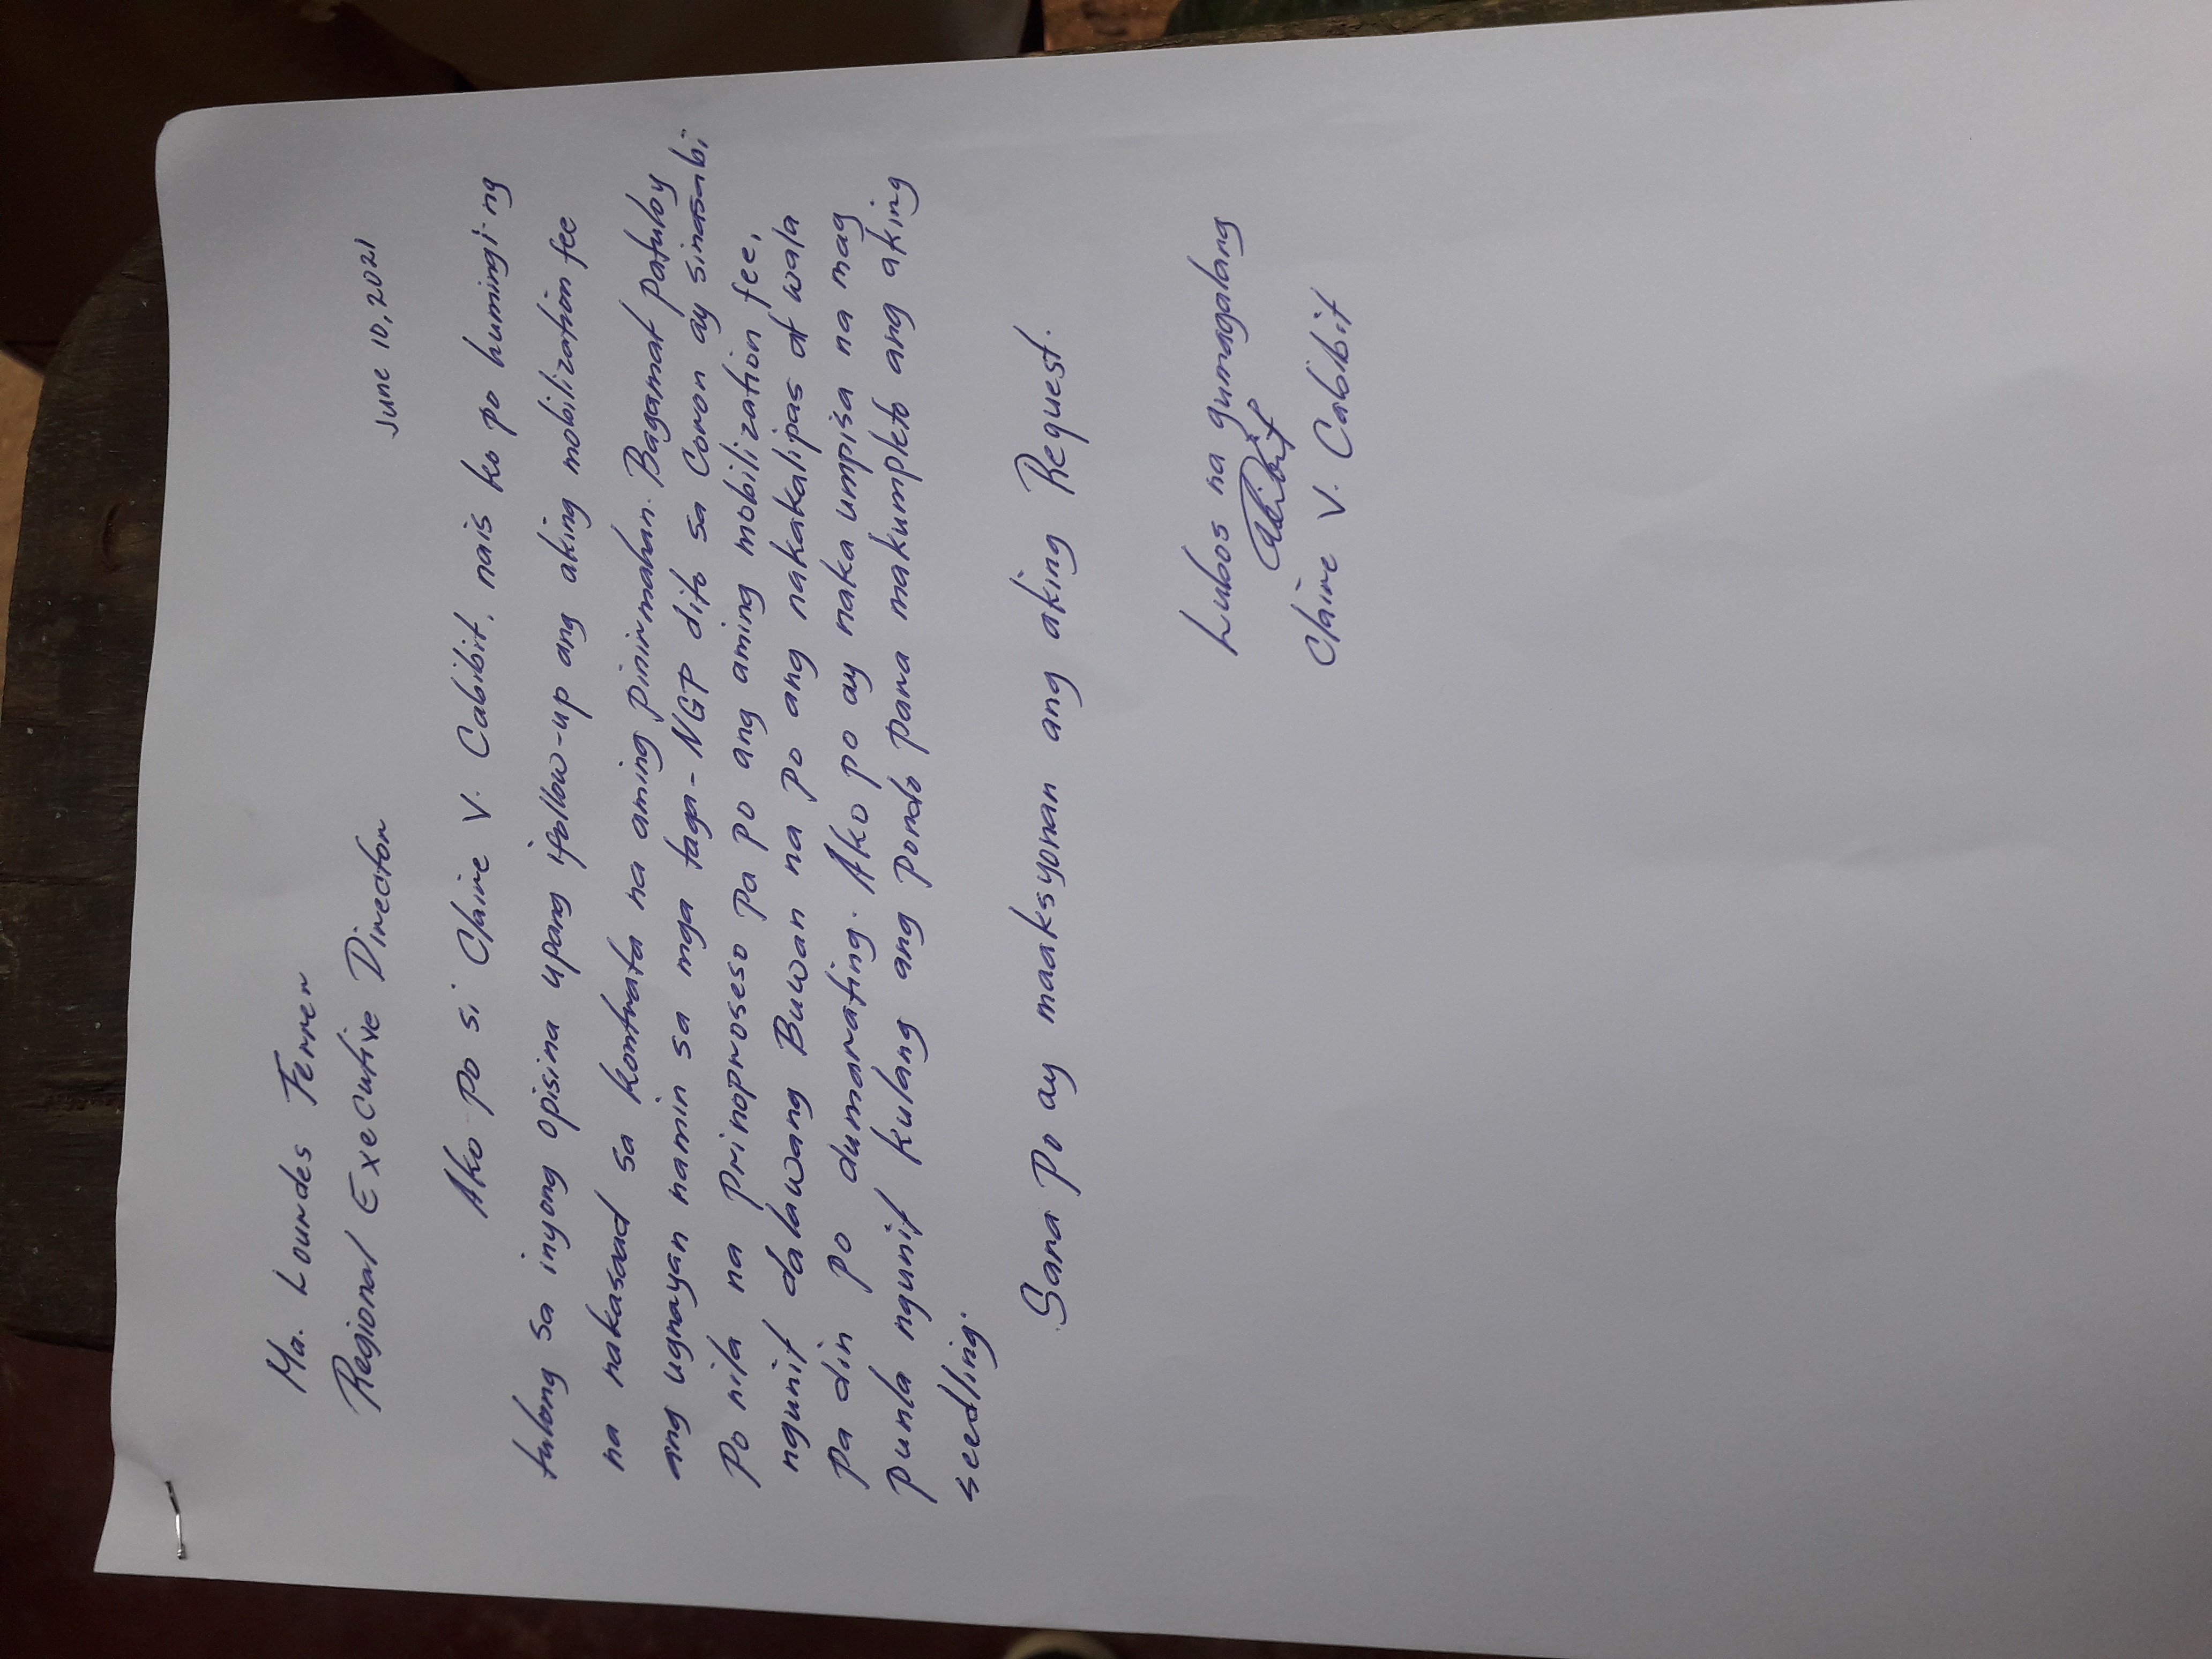 Ma. Lourdes Ferrer
Regional Executive Director
June 10, 2021
Ako po si Claire V. Cabibit, nais ko po humingi ng
tulong sa inyong opisina upang ifollow-up ang aking mobilization fee
na nakasaad sa kontrata na aming pinirmahan. Bagamat patuloy
ang ugnayan namin sa mga taga-NGP dito sa Coron ay sinasabi
po nila na prinoproseso pa po ang aming mobilization fee,
ngunit dalawang Buwan na po ang nakakalipas at wala
pa din po dumarating. Ako po ay naka umpisa na mag
punla ngunit kulang ang pondo para makumpleto ang aking
seedling.
Sana po ay maaksyonan ang aking Request.
Lubos na gumagalang
Cabibit
Claire V. Cabibit